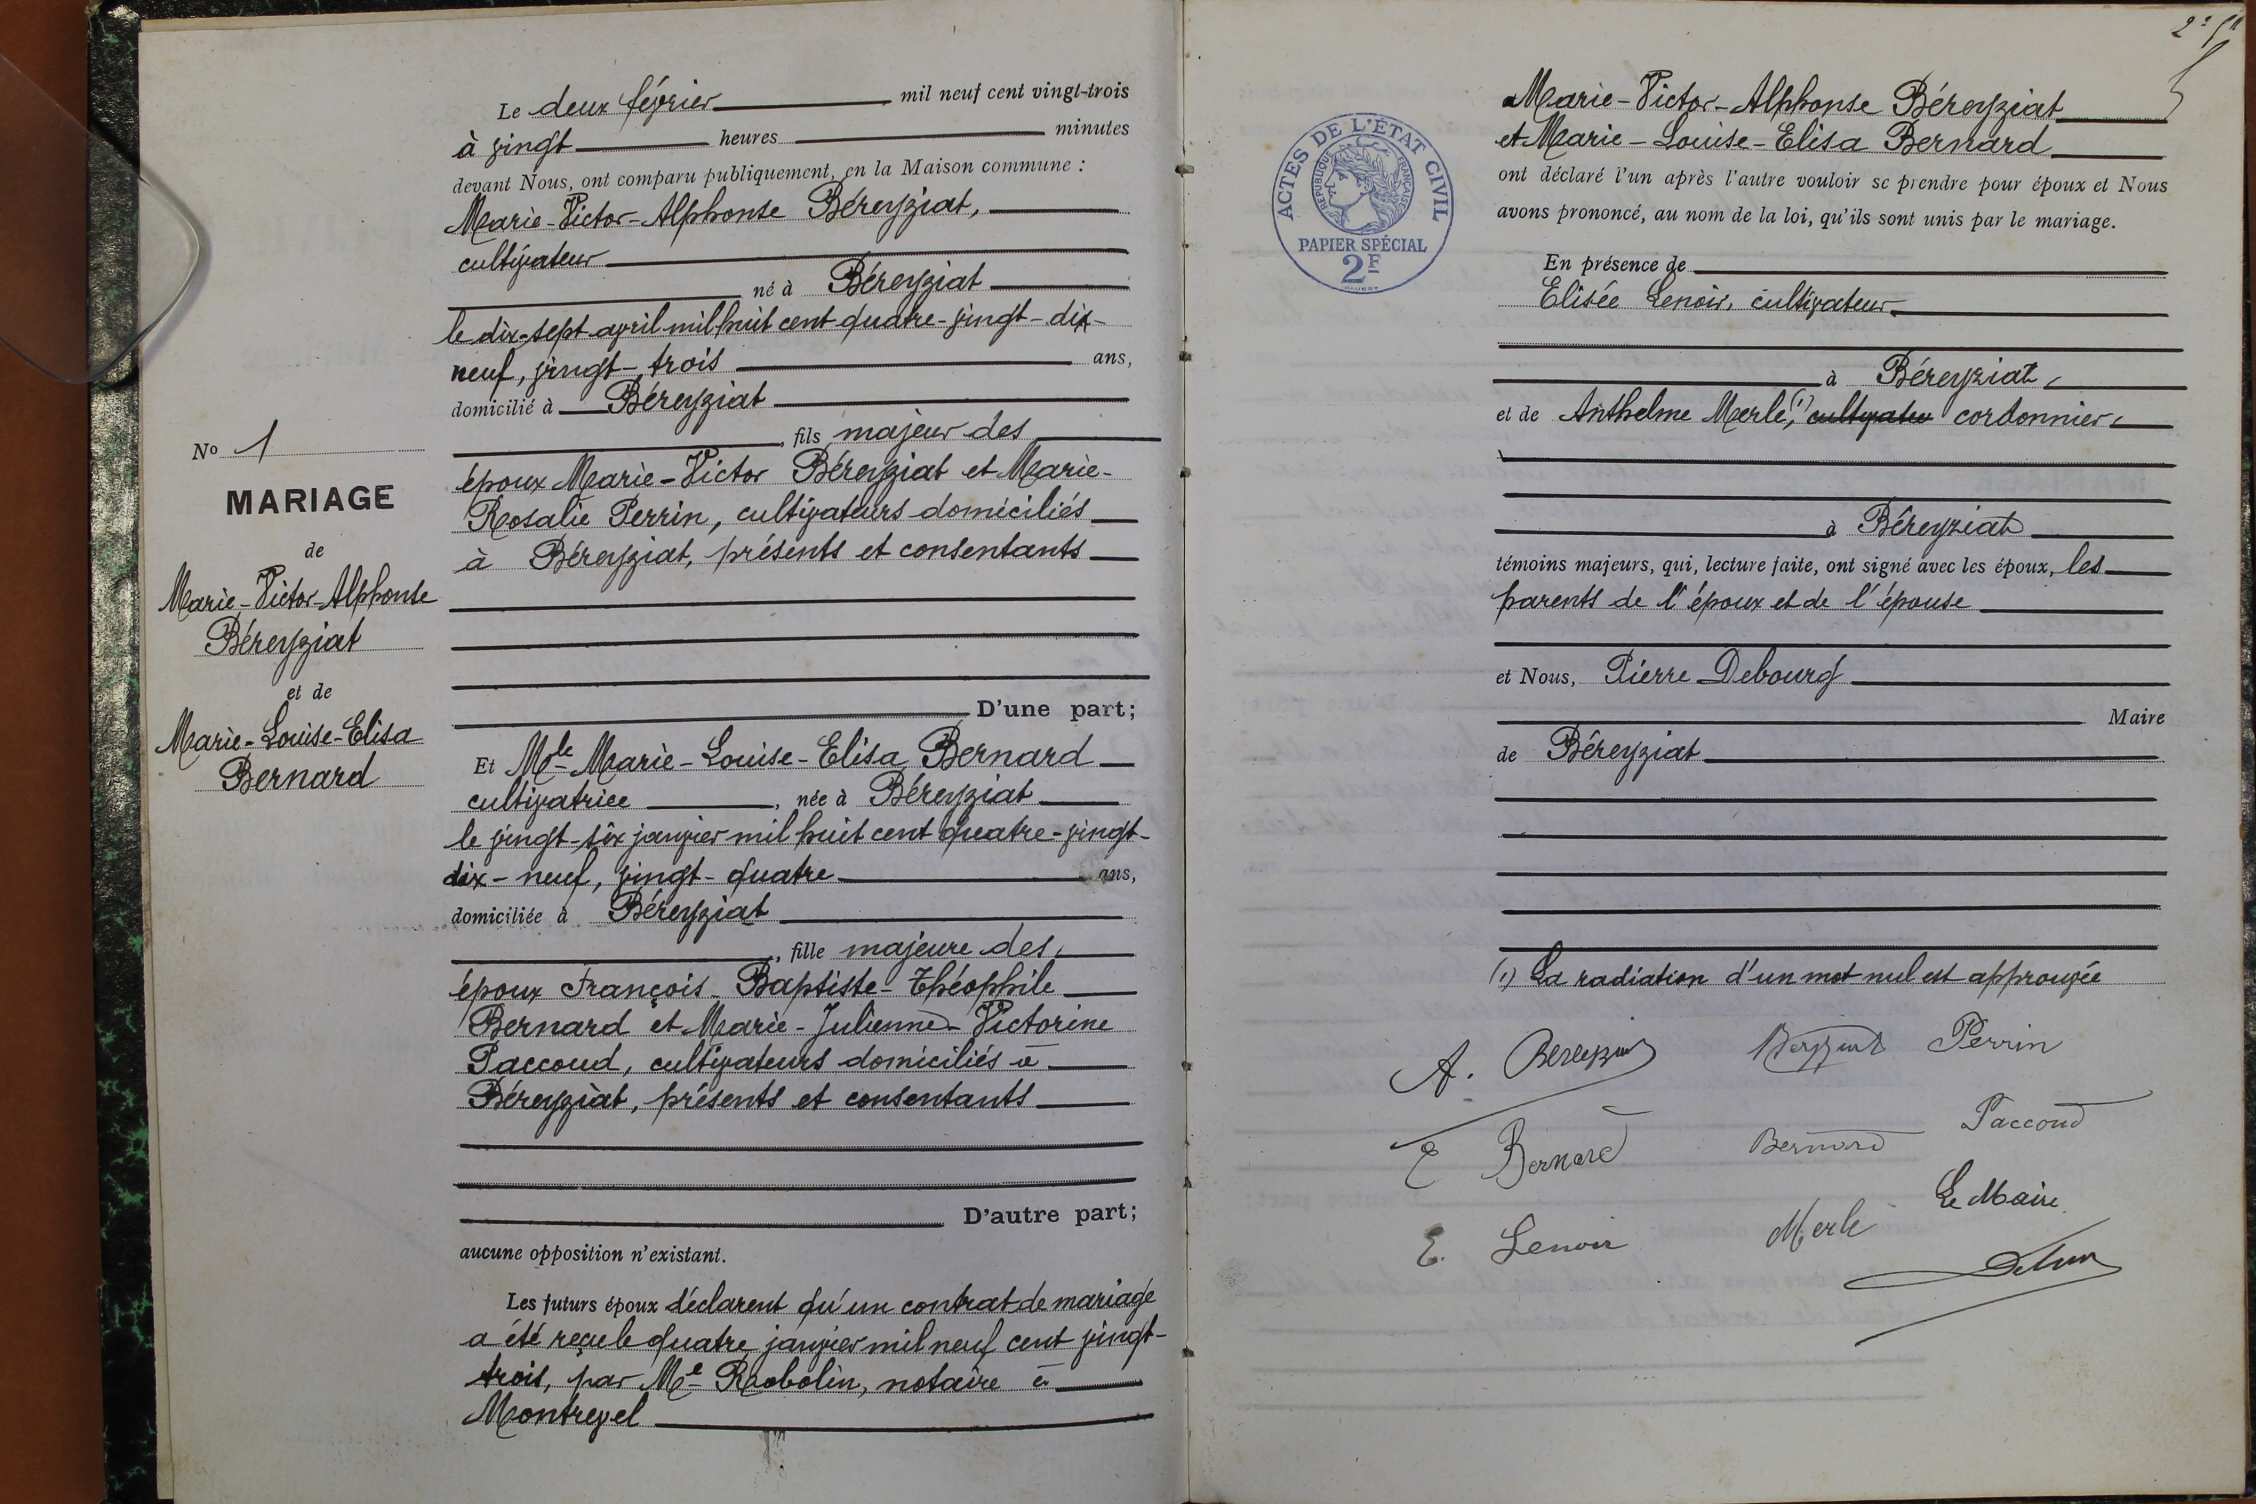 Le deux février mil neuf cent vingt-trois
à vingt heures minutes
devant Nous, ont comparu publiquement, en la Maison commune :
Marie-Victor-Alphonse Béreyziat,
cultivateur
né à Béreyziat
le dix-sept avril mil huit cent quatre-vingt-dix-
neuf, vingt-trois ans,
domicilié à Béreyziat
, fils majeur des
époux Marie-Victor Béreyziat et Marie-
Rosalie Perrin, cultivateurs domiciliés
à Béreyziat, présents et consentants
D'une part;
No 1
MARIAGE
de
Marie-Victor-Alphonse
Béreyziat
et de
Marie-Louise-Elisa
Bernard
Et Mle Marie-Louise-Elisa Bernard
cultivatrice, née à Béreyziat
le vingt-six janvier mil huit cent quatre-vingt-
dix-neuf, vingt-quatre ans,
domiciliée à Béreyziat
, fille majeure des
époux François-Baptiste-Théophile
Bernard et Marie-Julienne-Victorine
Paccoud, cultivateurs domiciliés à
Béreyziat, présents et consentants
D'autre part;
aucune opposition n'existant.
Les futurs époux déclarent qu'un contrat de mariage
a été reçu le quatre janvier mil neuf cent vingt-
trois, par Me Robolin, notaire à
Montrevel
ACTES DE L'ÉTAT CIVIL
RÉPUBLIQUE FRANÇAISE
PAPIER SPÉCIAL
2F
Marie-Victor-Alphonse Béreyziat
et Marie-Louise-Elisa Bernard
ont déclaré l'un après l'autre vouloir se prendre pour époux et Nous
avons prononcé, au nom de la loi, qu'ils sont unis par le mariage.
En présence de
Elisée Lenoir, cultivateur
à Béreyziat,
et de Anthelme Merle, (1) cultivateur cordonnier,
à Béreyziat
témoins majeurs, qui, lecture faite, ont signé avec les époux, les
parents de l'époux et de l'épouse
et Nous, Pierre Debourg
Maire
de Béreyziat
(1) La radiation d'un mot nul est approuvée
A. Bereyziat Bereyziat Perrin
E Bernard Bernard Paccoud
E. Lenoir Merle Le Maire